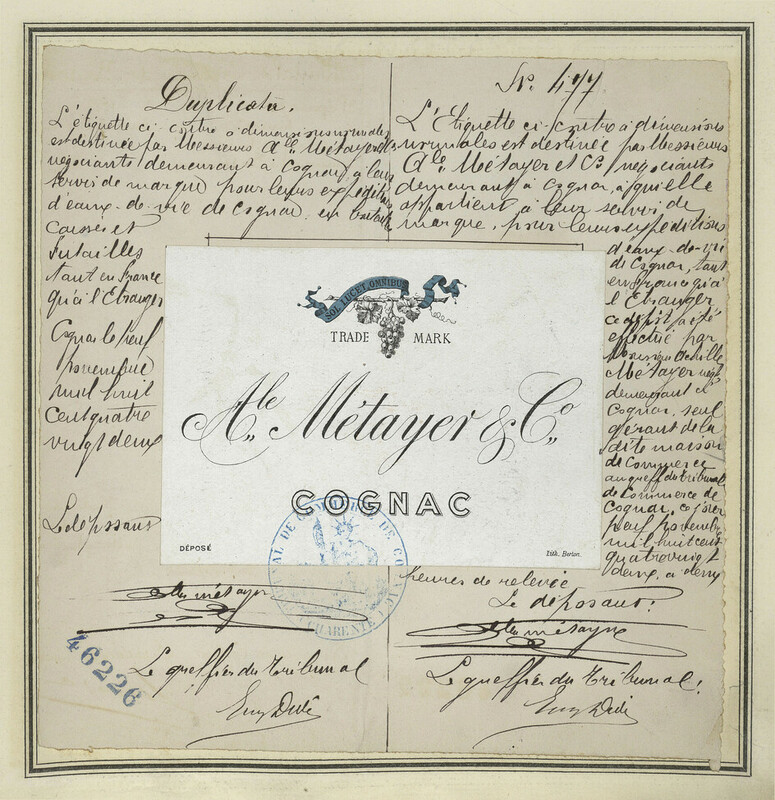 Duplicata.
L'étiquette ci-contre à dimensions normales
est destinée par Messieurs Ale Métayer & Cie
négociants demeurant à Cognac, à leur
servir de marque pour leurs expéditions
d'eaux-de-vie de Cognac en bouteilles
Caisses et
futailles
tant en France
qu'à l'Etranger
Cognac le neuf
novembre
mil huit
cent quatre
vingt deux
Le déposant
Ale Métayer
46226
Le greffier du Tribunal
No. 477
L'Etiquette ci-contre à dimensions
normales est destinée par Messieurs
Ale Métayer et Cie négociants
demeurant à Cognac, à qui elle
appartient à leur servir de
marque, pour leurs expéditions
d'eaux-de-vie
de Cognac, tant
en France qu'à
l'Etranger
ce dépôt a été
effectué par
Monsieur Achille
Métayer négt
demeurant à
Cognac, seul
gérant de la
dite maison
de Commerce
au greffe du tribunal
de Commerce de
Cognac, ce jour
neuf novembre
mil huit cent
quatre vingt
deux, à deux
heures de relevée
Le déposant:
Ale Métayer
Le greffier du Tribunal.
SOL LUCET OMNIBUS
TRADE MARK
Ale Métayer & Co
COGNAC
DÉPOSÉ
Lith. Berton.
TRIBUNAL DE COMMERCE DE COGNAC (CHARENTE)